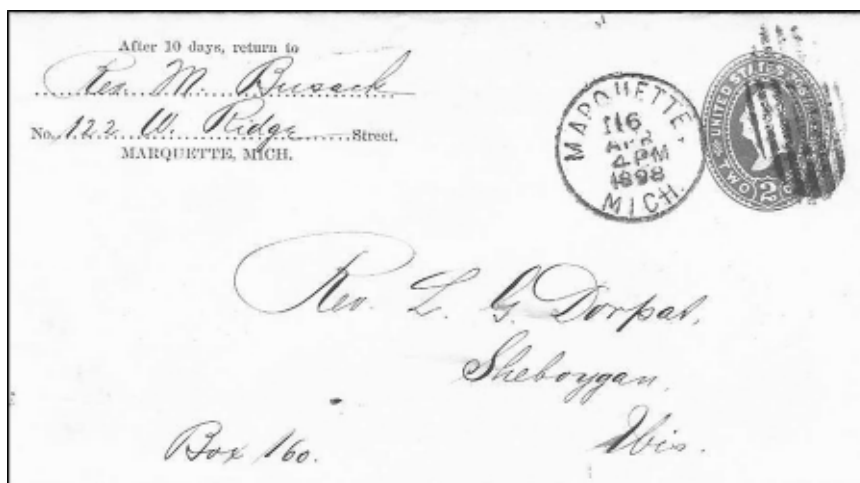 After 10 days, return to
Rev. M. Busack
No. 122 W. Ridge Street.
MARQUETTE, MICH.
MARQUETTE,
16
APR
4 PM
1898
MICH.
UNITED STATES
TWO 2
Rev. L. G. Dorpat,
Sheboygan,
Wis.
Box 160.